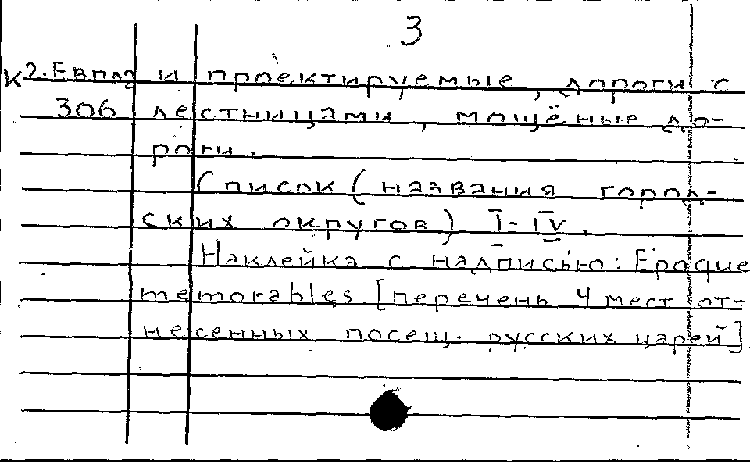 3
К 2. Евпл и проектируемые, дороги с
306 лестницами, мощёные до-
роги.
Список (названия город-
ских округов) I-IV.
Наклейка с надписью: Epoque
memorables [перечень 4 мест от-
несенных посещ. русских царей]